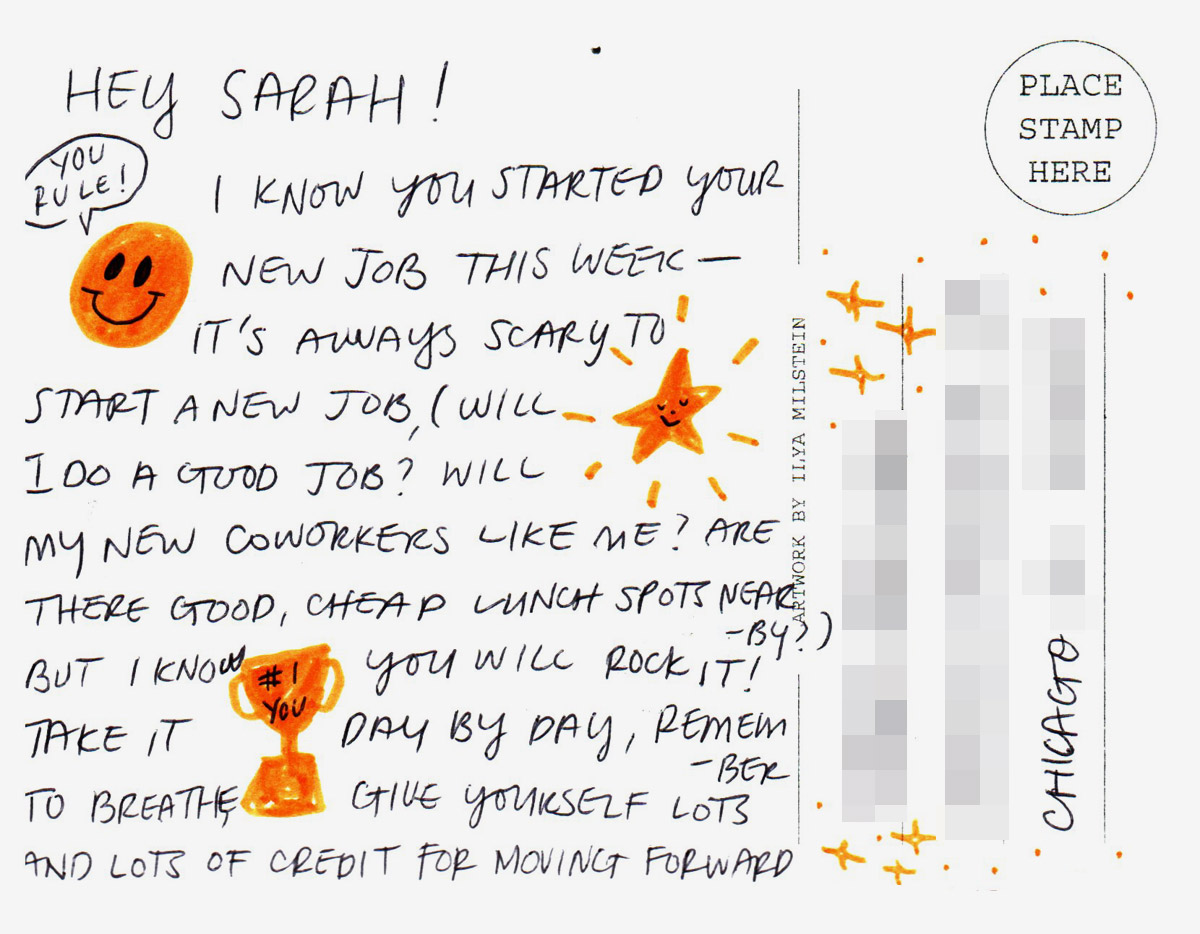 HEY SARAH!
YOU
RULE!
I KNOW YOU STARTED YOUR
NEW JOB THIS WEEK —
IT'S ALWAYS SCARY TO
START A NEW JOB, (WILL
I DO A GOOD JOB? WILL
MY NEW COWORKERS LIKE ME? ARE
THERE GOOD, CHEAP LUNCH SPOTS NEAR
-BY?)
BUT I KNOW YOU WILL ROCK IT!
#1
YOU
TAKE IT DAY BY DAY, REMEM
-BER
TO BREATHE, GIVE YOURSELF LOTS
AND LOTS OF CREDIT FOR MOVING FORWARD
ARTWORK BY ILYA MILSTEIN
PLACE
STAMP
HERE
CHICAGO